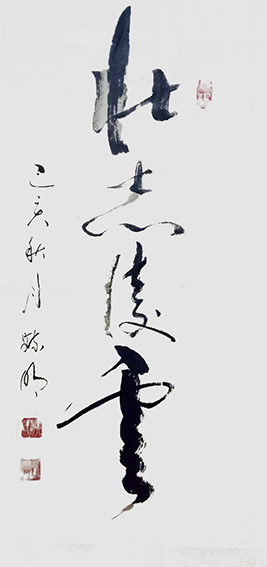 壮志凌云
己亥秋月